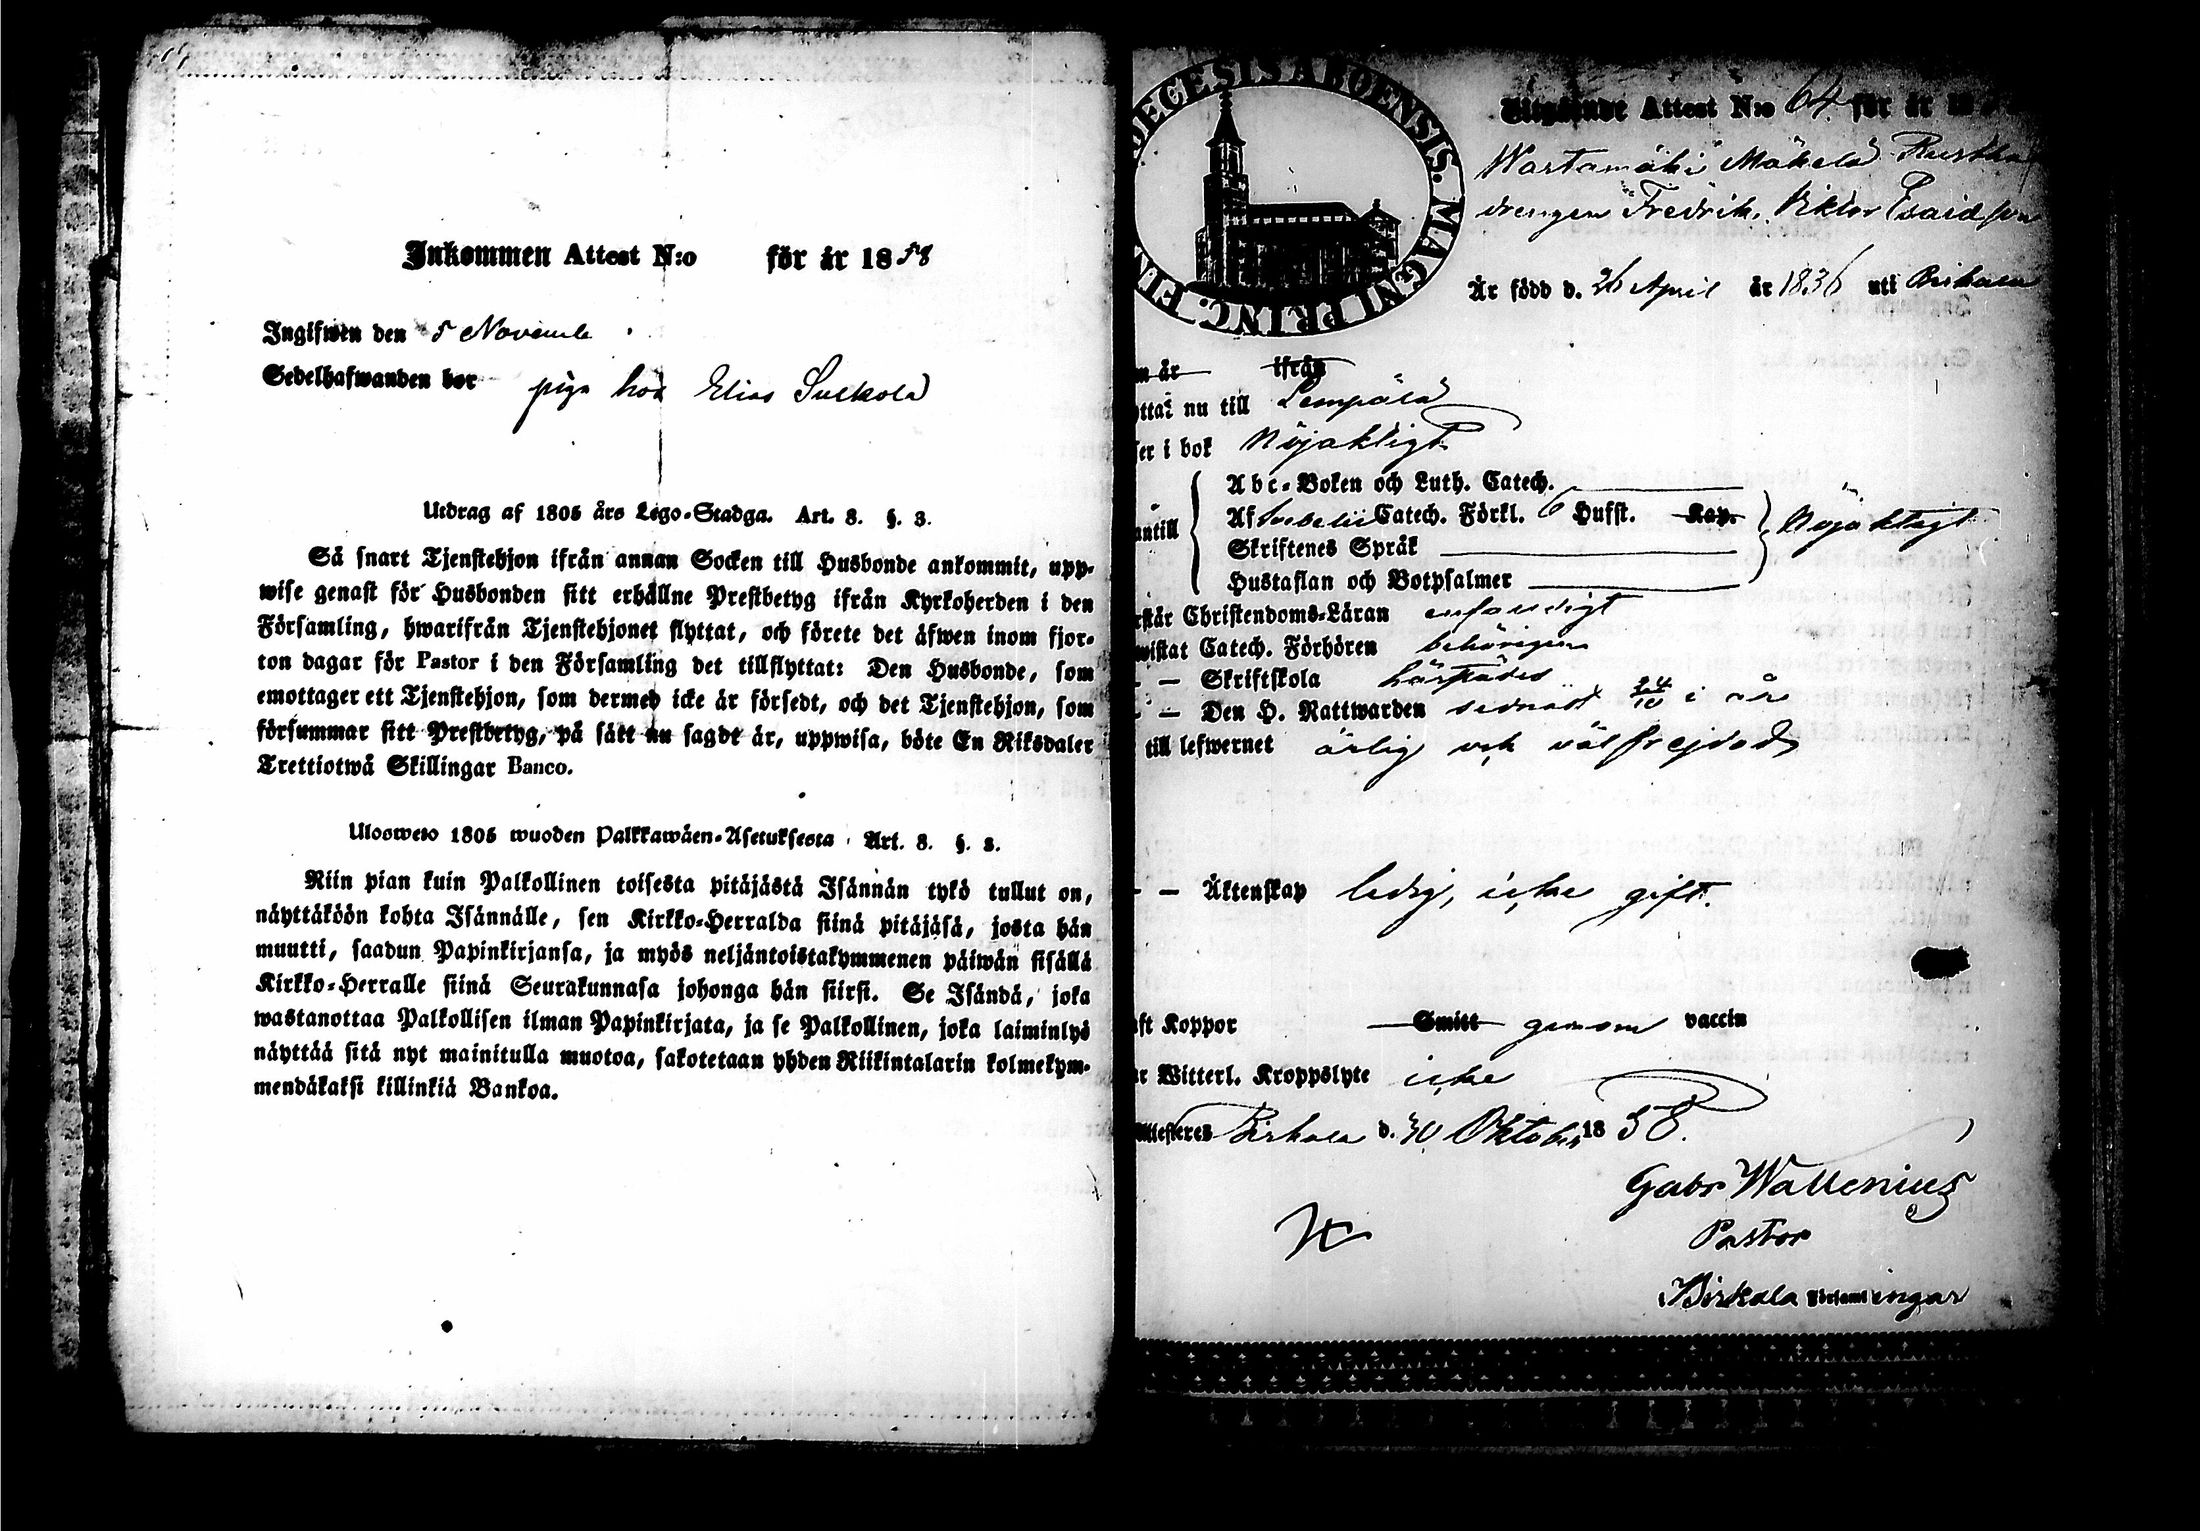 Inkommen Attest N:o för år 1858
Ingifwen den 5 Novemb
Sedelhafwanden bor piga hos Elias Sulkola
Utdrag af 1805 års Lego-Stadga. Art. 8. §. 3.
Så snart Tjenstehjon ifrån annan Socken till Husbonde ankommit, upp-
wise genast för Husbonden sitt erhållne Prestbetyg ifrån Kyrkoherden i den
Församling, hwarifrån Tjenstehjonet flyttat, och förete det äfwen inom fjor-
ton dagar för Pastor i den Församling det tillflyttat: Den Husbonde, som
emottager ett Tjenstehjon, som dermed icke är försedt, och det Tjenstehjon, som
försummar sitt Prestbetyg, på sätt nu sagdt är, uppwisa, böte En Riksdaler
Trettiotwå Skillingar Banco.
Ulosweto 1805 wuoden Palkkawäen-Asetuksesta Art. 8. §. 3.
Niin pian kuin Palkollinen toisesta pitäjästä Isännän tykö tullut on,
näyttäköön kohta Isännälle, sen Kirkko-Herralda siinä pitäjäsä, josta hän
muutti, saadun Papinkirjansa, ja myös neljäntoistakymmenen päiwän sisällä
Kirkko-Herralle siinä Seurakunnasa johonga hän siirsi. Se Isändä, joka
wastanottaa Palkollisen ilman Papinkirjata, ja se Palkollinen, joka laiminlyö
näyttää sitä nyt mainitulla muotoa, sakotetaan yhden Riikintalarin kolmekym-
mendäkaksi killinkiä Bankoa.
DECESIS ABOENSIS. MAGNI PRINC. FIN
Utgående Attest N:o 64 för år 18
Wartamäki Mäkelä Rustha
drengen Fredrik Viktor Esaidsson
Är född d. 26 April år 1836 uti Birkala
m är ifrån
yttar nu till Lempälä
ser i bok Nöjaktigt
Abc-Boken och Luth. Catech.
antill Af Svebelii Catech. Förkl. 6 Hufst. Kap. Nöjaktigt
Skriftenes Språk
Hustaflan och Botpsalmer
rstår Christendoms-Läran enfaldigt
wistat Catech. Förhören behörigen
- — Skriftskola härstädes
- — Den H. Nattwarden sednast 24/10 i år
till lefwernet ärlig och välfrejdad
- — Äktenskap ledig, icke gift.
aft Koppor Smitt genom vaccin
ar Witterl. Kroppslyte icke
Attesteres Birkala d. 30 Oktober 1858.
Gabr Wallenius
Pastor
Birkala Församlingar